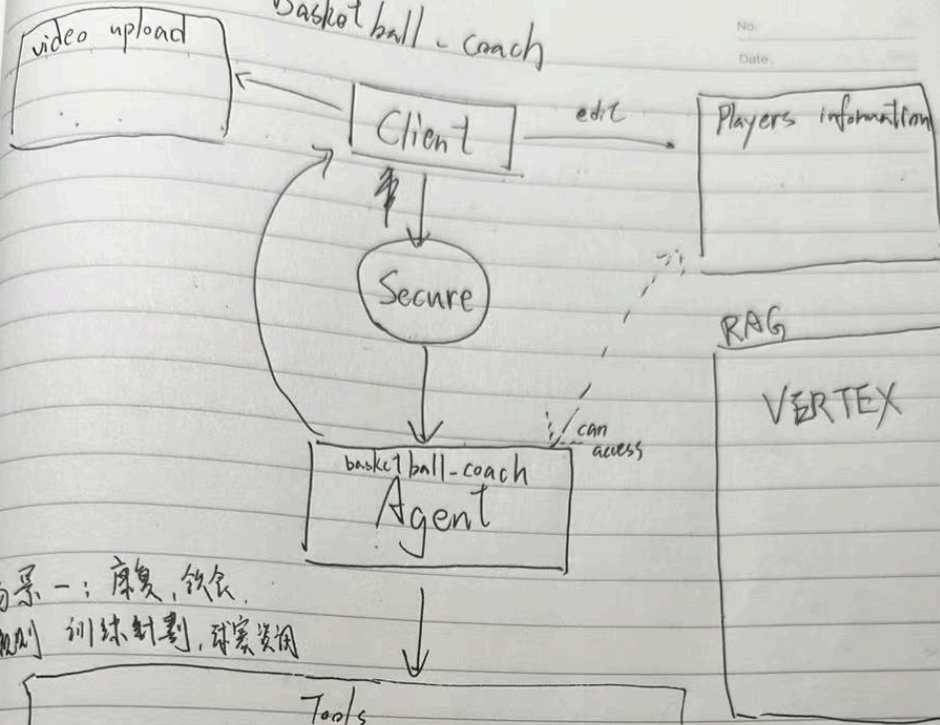 Basketball - coach
No.
Date.
video upload
Client
edit
Players information
Secure
RAG
VERTEX
can
access
basketball-coach
Agent
景一：康复、饮食、
规则 训练計劃，球賽资
Tools